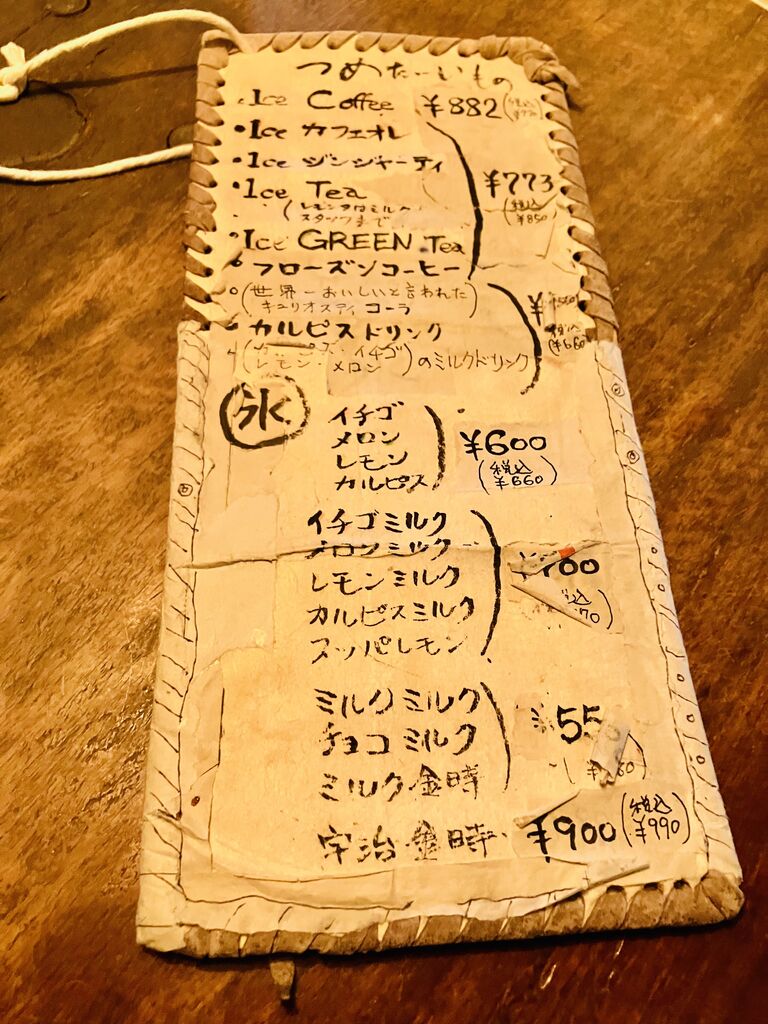 つめたーいもの
・Ice Coffee ¥882
・Ice カフェオレ
・Ice ジンジャーティ
・Ice Tea ¥773
(税込 ¥850)
(レモン又はミルク
スタッフまで
・Ice GREEN Tea
・フローズンコーヒー
(世界一おいしいと言われた
キュリオスティ コーラ)
・カルピスドリンク (¥660)
(カルピス・イチゴ
レモン・メロン)のミルクドリンク
氷
イチゴ
メロン
レモン
カルピス
¥600
(税込
¥660)
イチゴミルク
メロンミルク
レモンミルク
カルピスミルク
スッパレモン
ミルクミルク
チョコミルク
ミルク金時
宇治金時 ¥900 (税込
¥990)